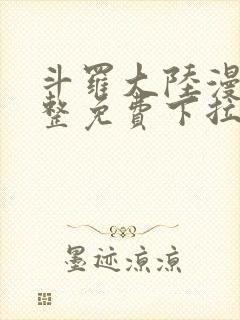 斗羅大陸漫
整免費下拉
墨迹凉凉